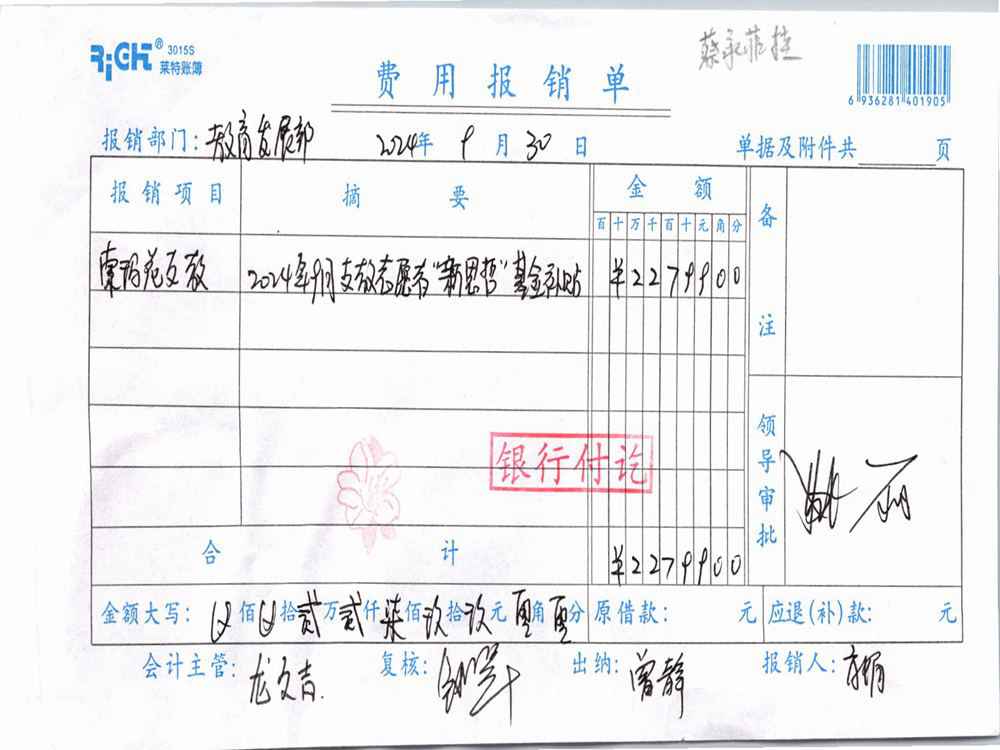 RiGHT® 3015S
莱特账簿
蔡永菲挂
费用报销单
6 936281 401905
报销部门：教育发展部 2024年 9月 30日 单据及附件共 页
报销项目 摘要 金额 备注
百十万千百十元角分
支教 2024年9月支教志愿者“新思哲”基金补贴 ¥2279900
银行付讫
领导审批
合计 ¥2279900
金额大写： 佰 拾贰万贰仟柒佰玖拾玖元零角零分 原借款： 元 应退(补)款： 元
会计主管：龙文吉 复核： 出纳：曾静 报销人：